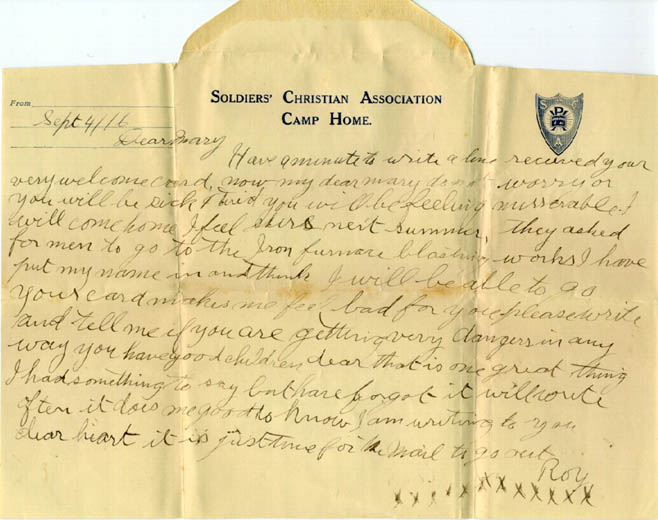 SOLDIERS' CHRISTIAN ASSOCIATION
CAMP HOME.
From
S C A
Sept 4/16
Dear Mary
Have a minute to write a line received your
very welcome card, now my dear mary do not worry or
you will be sick I you will be feeling misserable I
will come home I feel sure next summer, they asked
for men to go to the Iron furnace blasting works I have
put my name in and think I will be able to go
your card makes me feel bad for you please write
and tell me if you are getting very dangers in any
way you have good children dear that is one great thing
I had something to say but have forgot it will write
often it does me good to know I am writing to you
dear heart it is just time for the mail to go out
Roy
x x x x x x x x x x x x